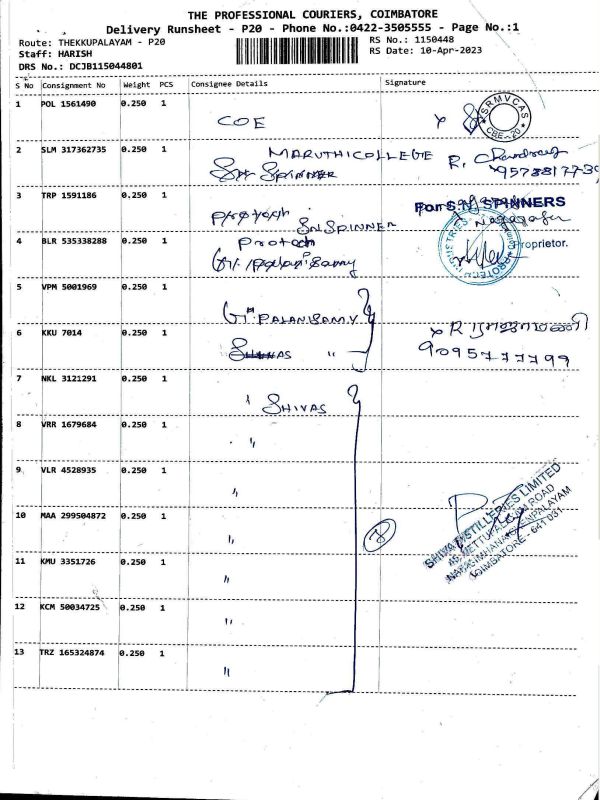 THE PROFESSIONAL COURIERS, COIMBATORE
Delivery Runsheet - P20 - Phone No.:0422-3505555 - Page No.:1
Route: THEKKUPALAYAM - P20
RS No.: 1150448
Staff: HARISH
RS Date: 10-Apr-2023
DRS No.: DCJB115044801
S No Consignment No Weight PCS Consignee Details Signature
1 POL 1561490 0.250 1
COE
SRMVCAS
CBE-20
2 SLM 317362735 0.250 1
MARUTHI COLLEGE R.
SPINNER
3 TRP 1591186 0.250 1
For S.N. SPINNERS
SN SPINNER
4 BLR 535338288 0.250 1
Protech
Proprietor.
5 VPM 5001969 0.250 1
PALANISAMY
6 KKU 7014 0.250 1
R ராஜாமணி
〃
9095777799
7 NKL 3121291 0.250 1
SHIVAS
8 VRR 1679684 0.250 1
〃
9 VLR 4528935 0.250 1
〃
10 MAA 299504872 0.250 1
〃
7
SHIVA DISTILLERIES LIMITED
45, METTUPALAYAM ROAD
NARASIMHANAICKENPALAYAM
COIMBATORE - 641 031.
11 KMU 3351726 0.250 1
〃
12 KCM 50034725 0.250 1
〃
13 TRZ 165324874 0.250 1
〃